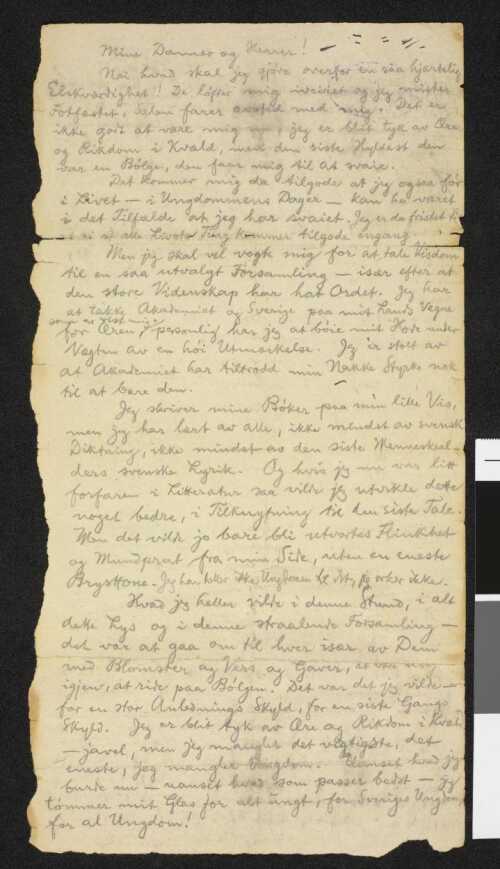 Mine Damer og Herrer!
Nei hvad skal jeg gjøre overfor en saa hjertelig
Elskværdighet!! De løfter mig iveiret og jeg mister
Fotfæstet, Salen farer avsted med mig. Det er
ikke godt at være mig nu, jeg er blit tyk av Ære
og Rikdom i Kvæld, men den siste Hyldest den
var en Bølge, den faar mig til at svaie.
Det kommer mig da tilgode at jeg ogsaa før
i Livet — i Ungdommens Dager — kan ha været
i det Tilfælde at jeg har svaiet. Jeg er da fristet til
at si at alle Livets Ting kommer tilgode engang.
Men jeg skal vel vogte mig for at tale Visdom
til en saa utvalgt Forsamling — især efter at
den store Videnskap har hat Ordet. Jeg har
at takke Akademiet og Sverige paa mit Lands Vegne
for Æren, som er vist mig personlig har jeg at bøie mit Hode under
Vægten av en høi Utmærkelse. Jeg er stolt av
at Akademiet har tiltrodd min Nakke Styrke nok
til at bære den.
Jeg skriver mine Bøker paa min lille Vis,
men jeg har lært av alle, ikke mindst av svensk
Diktning, ikke mindst av den siste Menneskeal-
ders svenske Lyrik. Og hvis jeg nu var litt
forfaren i Litteratur saa vilde jeg utvikle dette
noget bedre, i Tilknytning til den siste Tale.
Men det vilde jo bare bli utvortes Flinkhet
og Mundprat fra min Side, uten en eneste
Brysttone. Jeg har heller ikke Ungdommen til det, jeg orker ikke.
Hvad jeg heller vilde i denne Stund, i alt
dette Lys og i denne straalende Forsamling —
det var at gaa om til hver især av Dem
med Blomster og Vers og Gaver, at være ung
igjen, at ride paa Bølgen. Det var det jeg vilde —
for en stor Anlednings Skyld, for en siste Gangs
Skyld. Jeg er blit tyk av Ære og Rikdom i Kvæld
— javel, men jeg mangler det vigtigste, det
eneste, jeg mangler Ungdom. Uanset hvad jeg
burde nu — uanset hvad som passer bedst — jeg
tømmer mit Glas for alt ungt, for Sveriges Ungdom,
for al Ungdom!